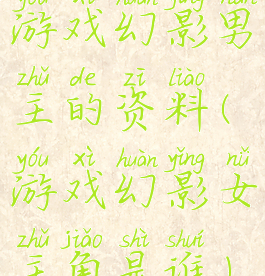 yóu xì huàn yǐng nán
游戏幻影男
zhǔ de zī liào
主的资料(
yóu xì huàn yǐng nǚ
游戏幻影女
zhǔ jiǎo shì shuí
主角是谁)